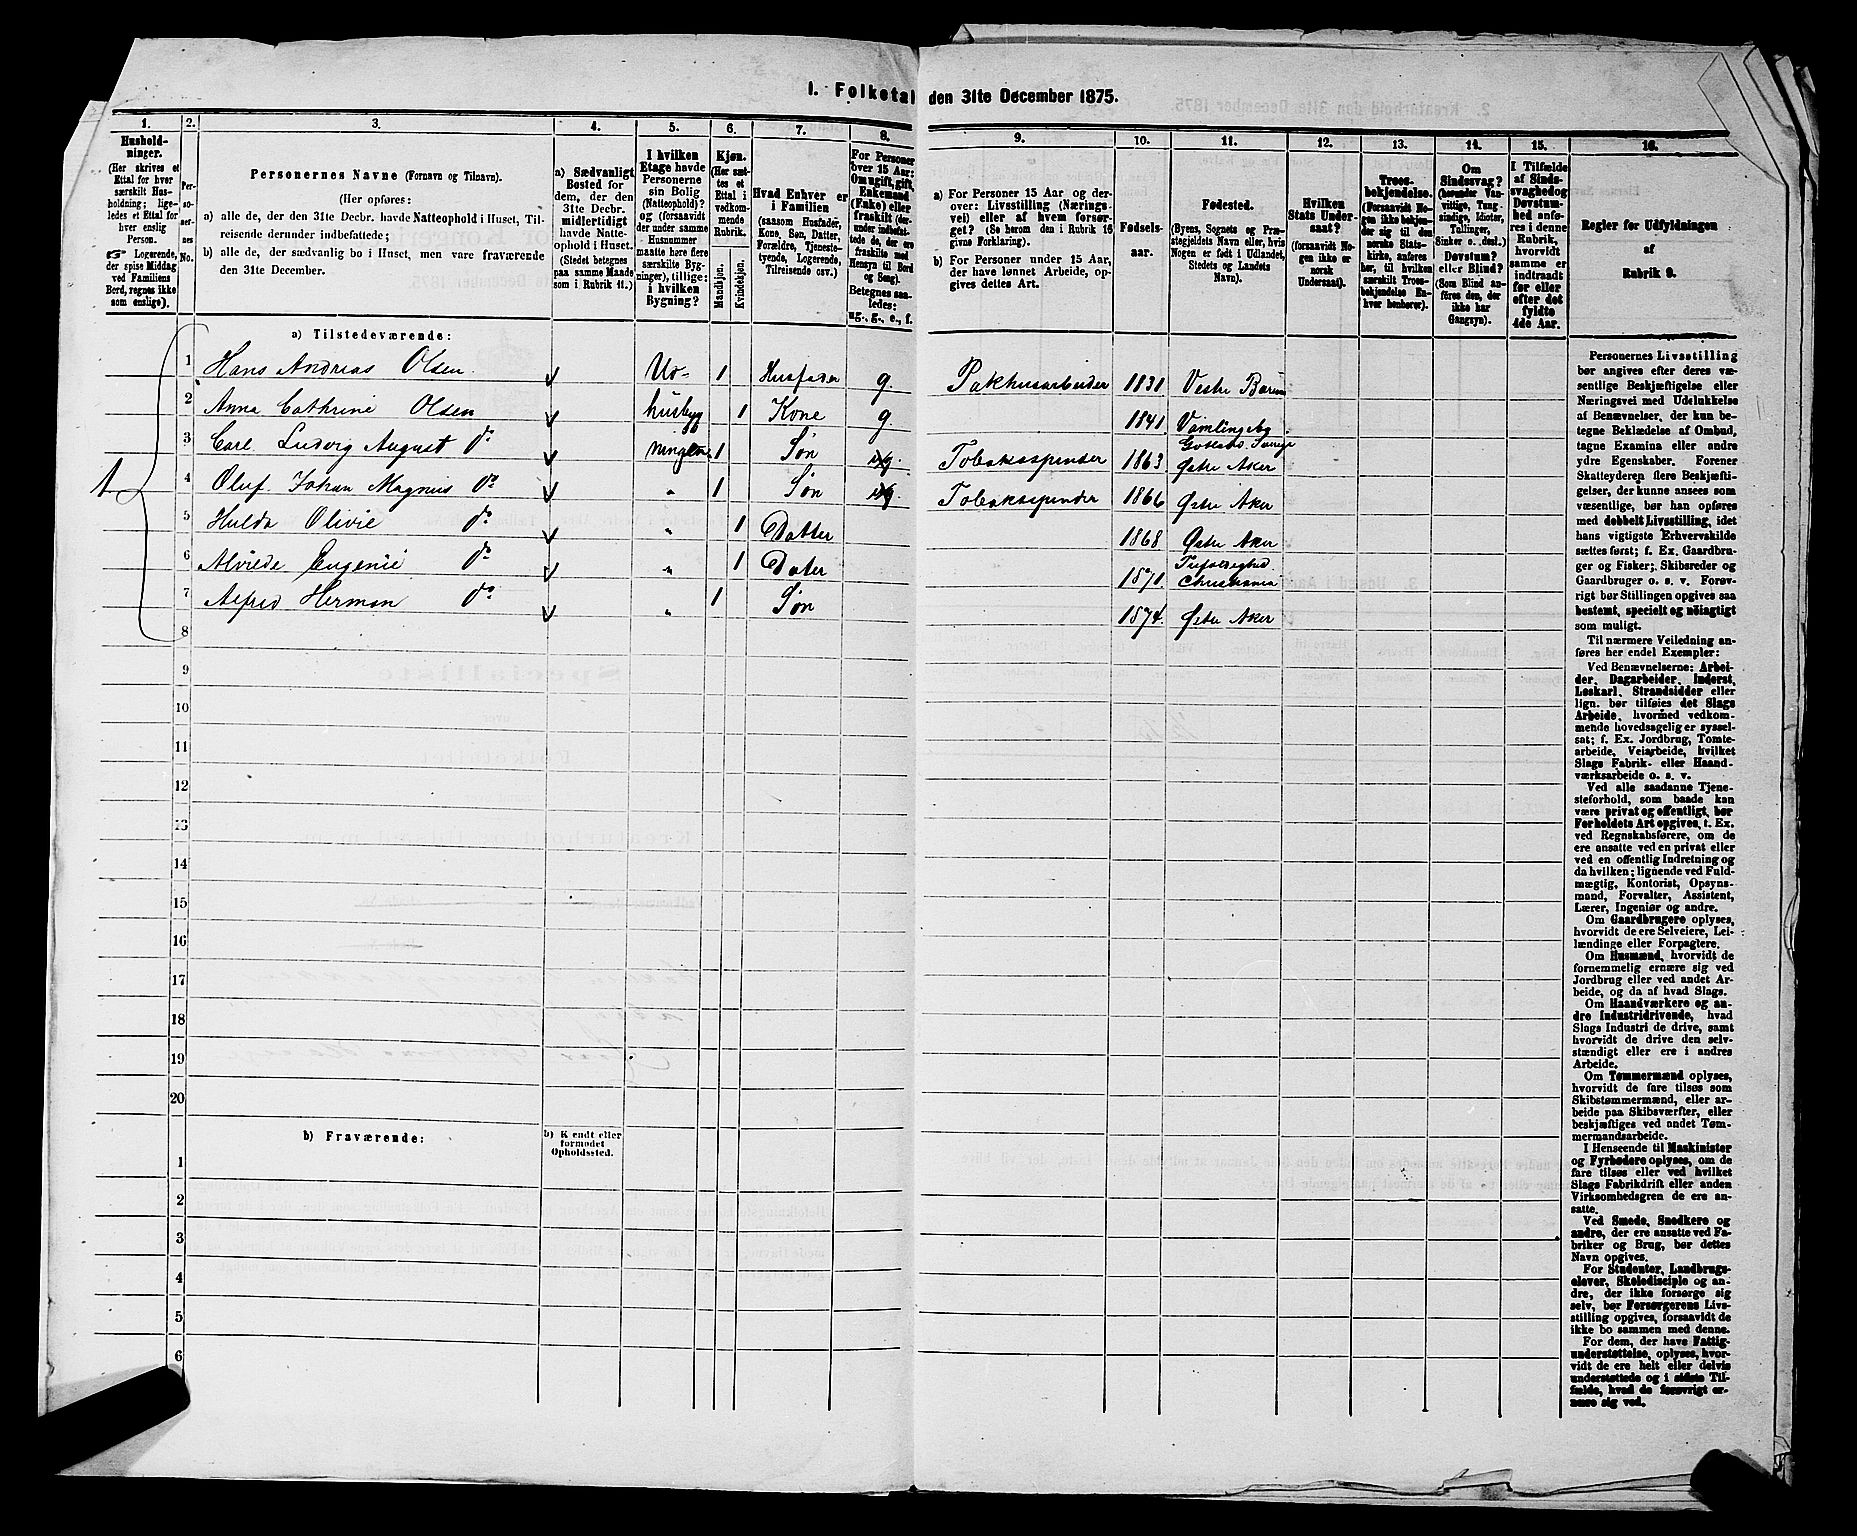 1. Folketal den 31te December 1875.
1. 2. 3. 4. 5. 6. 7. 8. 9. 10. 11. 12. 13. 14. 15. 16.
Hushold-
ninger.
(Her skrives et
Ettal for hver
særskilt Hus-
holdning; lige-
ledes et Ettal for
hver enslig
Person.
☞ Logerende,
der spise Middag
ved Familiens
Bord, regnes ikke
som enslige).
Per-
so-
ner-
nes
No.
Personernes Navne (Fornavn og Tilnavn).
(Her opføres:
a) alle de, der den 31te Decbr. havde Natteophold i Huset, Til-
reisende derunder indbefattede;
b) alle de, der sædvanlig bo i Huset, men vare fraværende
den 31te December.
a) Sædvanligt
Bosted for
dem, der den
31te Decbr.
midlertidigt
havde Natte-
ophold i Huset.
(Stedet betegnes
paa samme Maade
som i Rubrik 11.)
I hvilken
Etage havde
Personerne
sin Bolig
(Natteophold)?
og (forsaavidt
der under samme
Husnummer
maatte høre flere
særskilte Byg-
ninger), tillige:
i hvilken
Bygning?
Kjøn.
(Her sæt-
tes et
Ettal i
vedkom-
mende
Rubrik.
Mandkjøn.
Kvindekjøn.
Hvad Enhver er
i Familien
(saasom Husfader,
Kone, Søn, Datter,
Forældre, Tjeneste-
tyende, Logerende,
Tilreisende osv.)
For Personer
over 15 Aar:
Om ugift, gift,
Enkemand
(Enke) eller
fraskilt (der-
under indbefat-
tede de, der ere
fraskilte med
Hensyn til Bord
og Seng).
Betegnes saa-
ledes:
ug., g., e., f.
a) For Personer 15 Aar og der-
over: Livsstilling (Nærings-
vei) eller af hvem forsør-
get? (Se herom den i Rubrik 16
givne Forklaring).
b) For Personer under 15 Aar,
der have lønnet Arbeide, op-
gives dettes Art.
Fødsels-
aar.
Fødested.
(Byens, Sognets og Præ-
stegjeldets Navn eller, hvis
Nogen er født i Udlandet,
Stedets og Landets
Navn).
Hvilken
Stats Under-
saat?
(forsaavidt No-
gen ikke er
norsk
Undersaat).
Troes-
bekjendelse.
(Forsaavidt No-
gen ikke bekjen-
der sig til den
norske Stats-
kirke, anføres
her, til hvilken
særskilt Troes-
bekjendelse En-
hver henhører).
Om
Sindssvag?
(herunder Van-
vittige, Tung-
sindige, Idioter,
Tullinger,
Sinker o. desl.)
Døvstum?
eller Blind?
(Som Blind an-
føres den, der
ikke har
Gangsyn).
I Tilfælde
af Sinds-
svaghed og
Døvstum-
hed anfø-
res i denne
Rubrik,
hvorvidt
samme er
indtraadt
før eller
efter det
fyldte
4de Aar.
Regler for Udfyldningen
af
Rubrik 9.
a) Tilstedeværende:
1
1 Hans Andreas Olsen Ud- 1 Husfader g. Pakhusarbeider 1831 Vestre Bærum
2 Anna Cathrine Olsen husbyg 1 Kone g 1841 Vamlingebo
Gotland Sverige
3 Carl Ludvig August do ningen 1 Søn ug. Tobaksspinder 1863 Østre Aker
4 Oluf Johan Magnus do " 1 Søn ug. Tobaksspinder 1866 Østre Aker
5 Hulda Olivie do " 1 Datter 1868 Østre Aker
6 Alvilde Eugenie do " 1 Dater 1871 Christiania
7 Alfred Herman do " 1 Søn 1874 Østre Aker
8
9
10
11
12
13
14
15
16
17
18
19
20
b) Fraværende:
b) Kjendt eller
formodet
Opholdssted.
1
2
3
4
5
6
Personernes Livsstilling
bør angives efter deres væ-
sentlige Beskjæftigelse eller
Næringsvei med Udelukkelse
af Benævnelser, der kun be-
tegne Beklædelse af Ombud,
tagne Examina eller andre
ydre Egenskaber. Forener
Skatteyderen flere Beskjæfti-
gelser, der kunne ansees som
væsentlige, bør han opføres
med dobbelt Livsstilling, idet
hans vigtigste Erhvervskilde
sættes først; f. Ex. Gaardbru-
ger og Fisker; Skibsreder og
Gaardbruger o. s. v. Forøv-
rigt bør Stillingen opgives saa
bestemt, specielt og nøiagtigt
som muligt.
Til nærmere Veiledning an-
føres her endel Exempler:
Ved Benævnelserne: Arbei-
der, Dagarbeider, Inderst,
Løskarl, Strandsidder eller
lign. bør tilføies det Slags
Arbeide, hvormed vedkom-
mende hovedsagelig er syssel-
sat; f. Ex. Jordbrug, Tomte-
arbeide, Veiarbeide, hvilket
Slags Fabrik- eller Haand-
værksarbeide o. s. v.
Ved alle saadanne Tjene-
steforhold, som baade kan
være privat og offentligt, bør
Forholdets Art opgives, f. Ex.
ved Regnskabsførere, om de
ere ansatte ved en privat eller
ved en offentlig Indretning og
da hvilken; lignende ved Fuld-
mægtig, Kontorist, Opsyns-
mand, Forvalter, Assistent,
Lærer, Ingeniør og andre.
Om Gaardbrugere oplyses,
hvorvidt de ere Selveiere, Lei-
lændinge eller Forpagtere.
Om Husmænd, hvorvidt de
fornemmelig ernære sig ved
Jordbrug eller ved andet Ar-
beide, og da af hvad Slags.
Om Haandværkere og an-
dre Industridrivende, hvad
Slags Industri de drive, samt
hvorvidt de drive den selv-
stændigt eller ere i andres
Arbeide.
Om Tømmermænd oplyses,
hvorvidt de fare tilsøs som
Skibstømmermænd, eller ar-
beide paa Skibsværfter, eller
beskjæftiges ved andet Tøm-
mermandsarbeide.
I Henseende til Maskinister
og Fyrbødere oplyses, om de
fare tilsøs eller ved hvilket
Slags Fabrikdrift eller anden
Virksomhedsgren de ere an-
satte.
Ved Smede, Snedkere og
andre, der ere ansatte ved Fa-
briker og Brug, bør dettes
Navn opgives.
For Studenter, Landbrugs-
elever, Skoledisciple og an-
dre, der ikke forsørge sig
selv, bør Forsørgerens Livs-
stilling opgives, forsaavidt de
ikke bo sammen med denne.
For dem, der have Fattig-
understøttelse, oplyses, hvor-
vidt de ere helt eller delvis
understøttede og i sidste Til-
fælde, hvad de forøvrigt er-
nære sig ved.